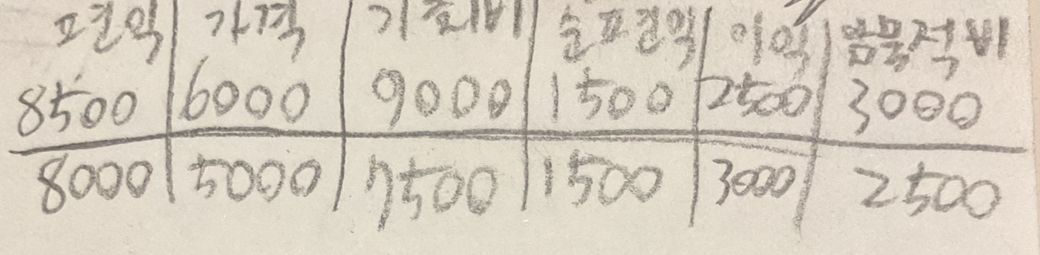 편익 가격 기회비 순편익 이익 암묵적비
8500 6000 9000 1500 2500 3000
8000 5000 7500 1500 3000 2500